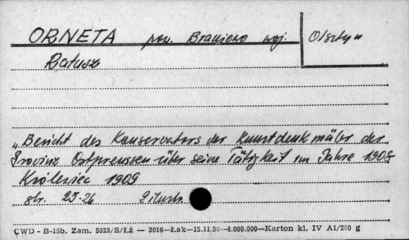 ORNETA pow. Braniewo woj. Olsztyn
Ratusz
„Bericht des Konservators der Kunstdenkmäler der
Provinz Ostpreussen über seine Tätigkeit im Jahre 1908
Królewiec 1909
str. 25-26 2 ilustr.
CWD - B-15b. Zam. 5823/S/ŁŻ — 2016—Łak—15.11.56—4.000.000—Karton kl. IV A1/250 g